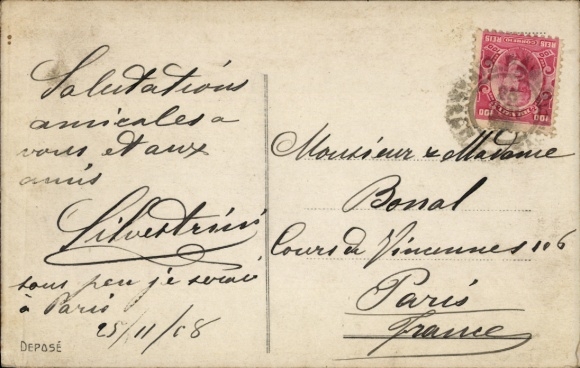 Salutations
amicales a
vous et aux
amis
Silvestrini
sous peu je serai
à Paris
25/11/08
DEPOSÉ
Monsieur & Madame
Bonal
Cours de Vincennes 106
Paris
France
100 REIS CORREIO 100 REIS
100 100